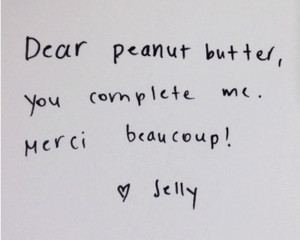 Dear peanut butter,
you complete me.
Merci beaucoup!
♡ Jelly